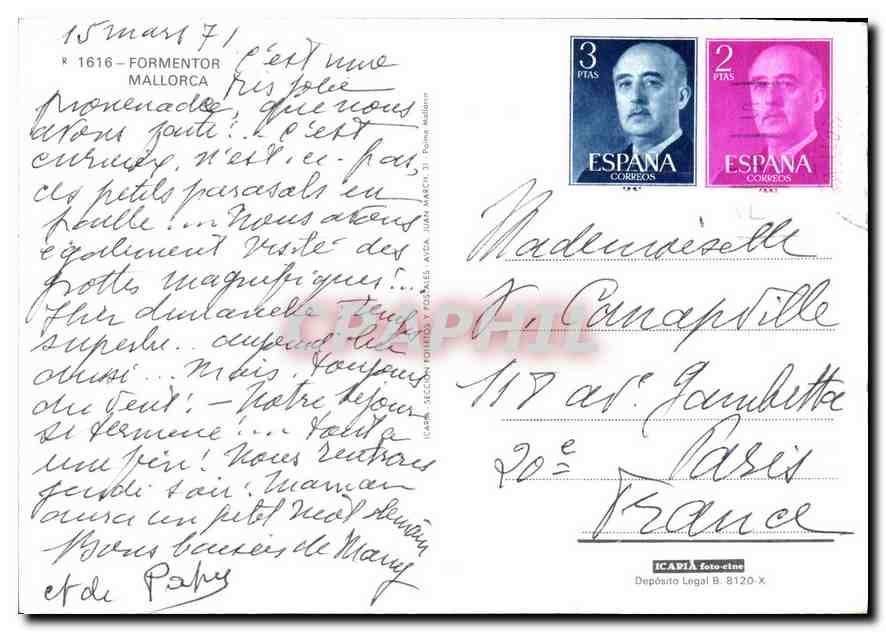 15 mars 71
R 1616 - FORMENTOR
MALLORCA
c'est une
très jolie
promenade que nous
avons faite!.. C'est
curieux, n'est-ce-pas,
ces petits parasols en
paille... Nous avons
également visité des
grottes magnifiques!...
Hier dimanche temps
superbe.. aujourd'hui
aussi... Mais, toujours
du vent! - Notre séjour
se termine!... tout a
une fin! Nous rentrons
jeudi soir! Maman
aura un petit mot demain
Bons baisers de Mamy
et de Papy
ICARIA - SECCIÓN POSTALES - AVDA. JUAN MARCH, 31 - Palma Mallorca
3 PTAS
ESPAÑA
CORREOS
2 PTAS
ESPAÑA
CORREOS
Mademoiselle
Canapville
118 av. Gambetta
20e Paris
France
ICARIA foto-cine
Depósito Legal B. 8120-X
CPAPHIL